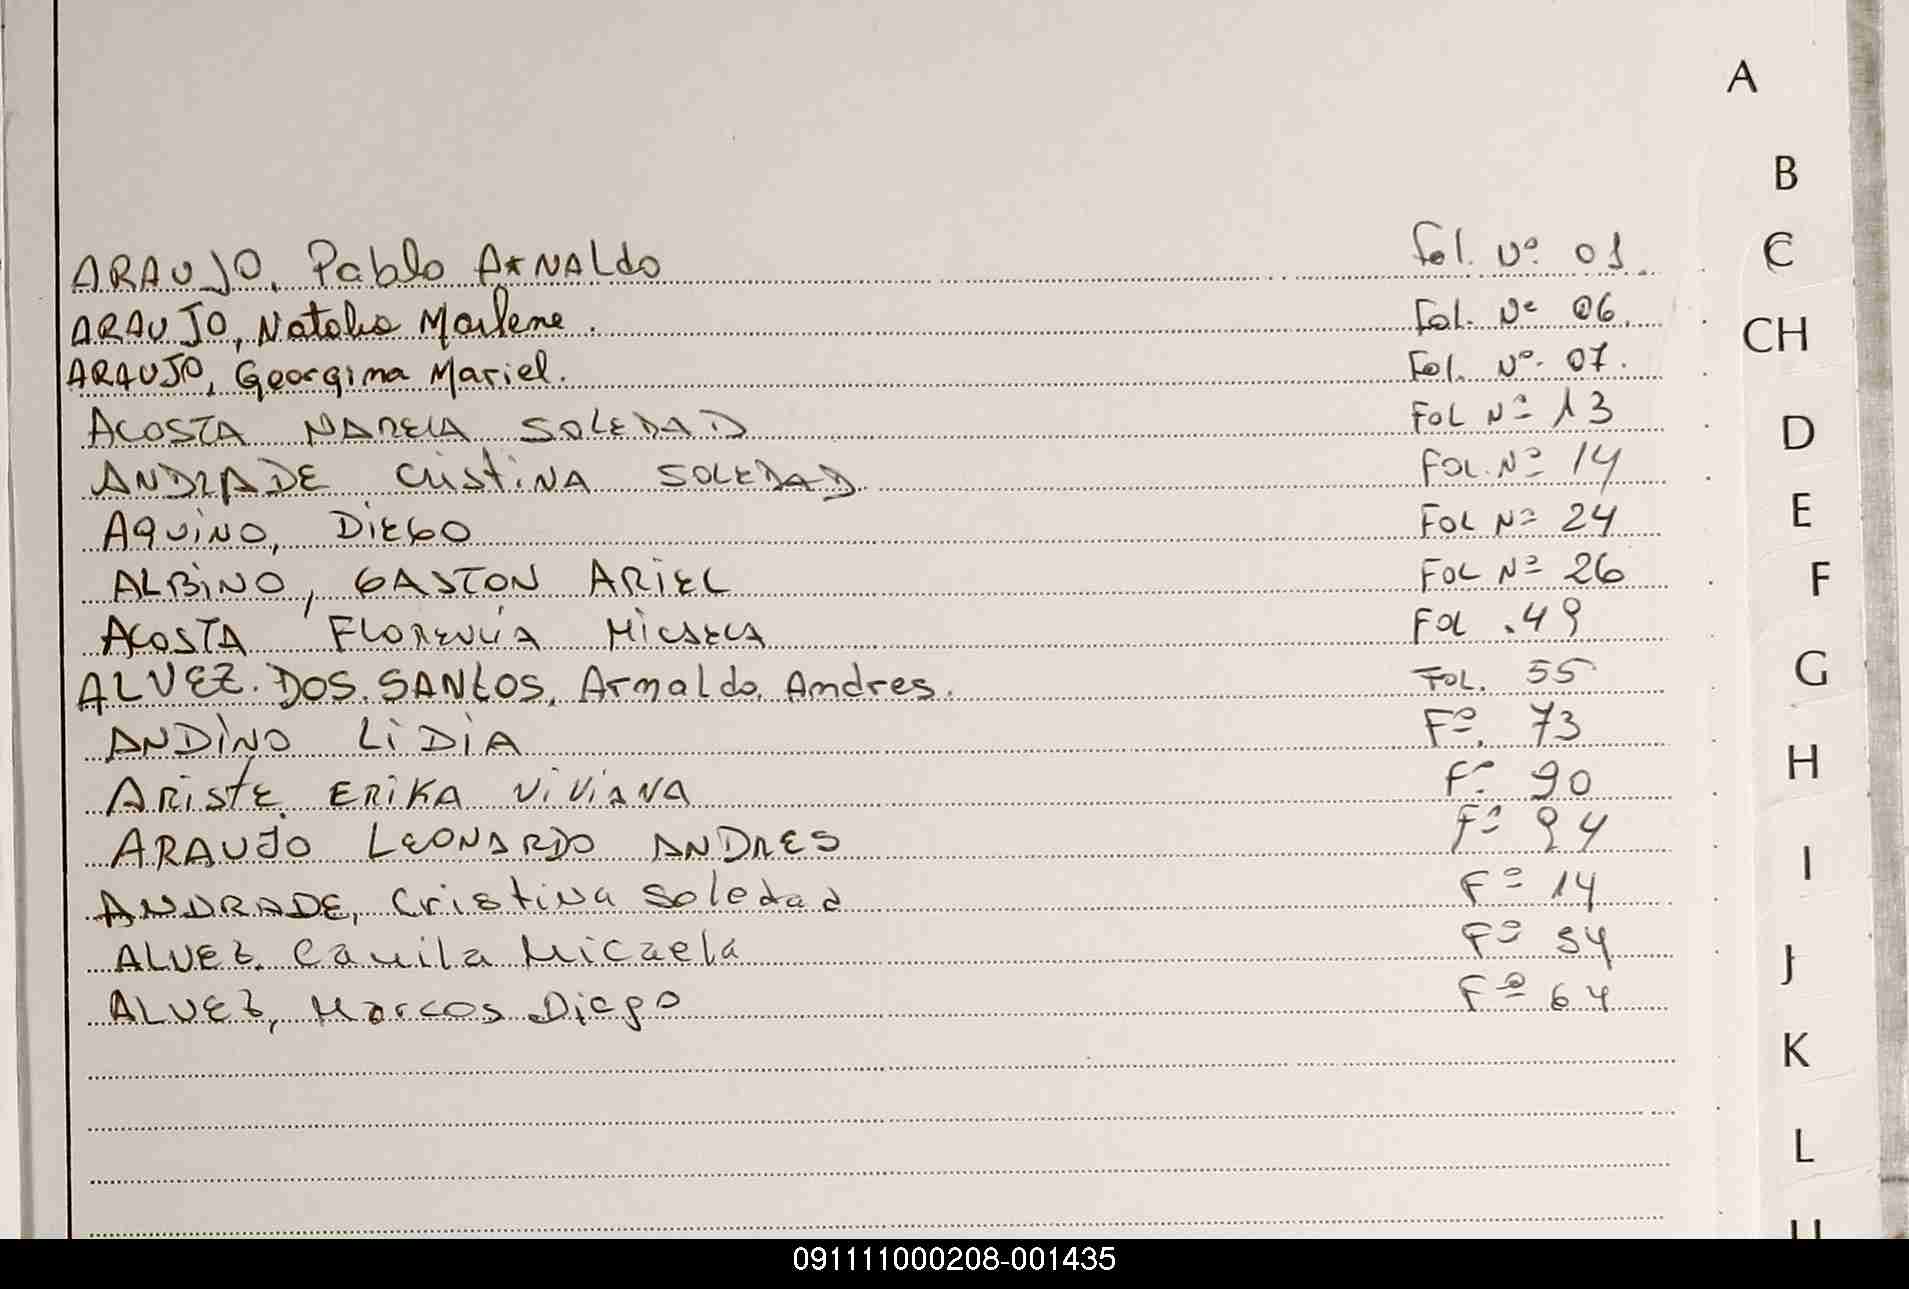 A
B
C
CH
D
E
F
G
H
I
J
K
L
ARAUJO, Pablo ARNALdo Fol. Nº 01.
ARAUJO, Natalia Marlene. Fol. Nº 06.
ARAUJO, Georgina Mariel. Fol. Nº 07.
ACOSTA SOLEDAD FOL Nº 13
ANDRADE CRISTINA SOLEDAD FOL. Nº 14
AQUINO, DIEGO FOL Nº 24
ALBINO, GASTON ARIEL FOL Nº 26
ACOSTA FLORENCIA MICAELA FOL. 49
ALVEZ. DOS. SANtOS, Arnaldo Andres. FOL. 55
ANDINO LIDIA Fº. 73
ARISTE. ERIKA VIVIANA Fº 90
ARAUJO LEONARDO ANDRES Fº 94
ANDRADE, Cristina Soledad Fº 14
ALVEZ. Camila Micaela Fº
ALVEZ, Marcos Diego Fº 64
091111000208-001435